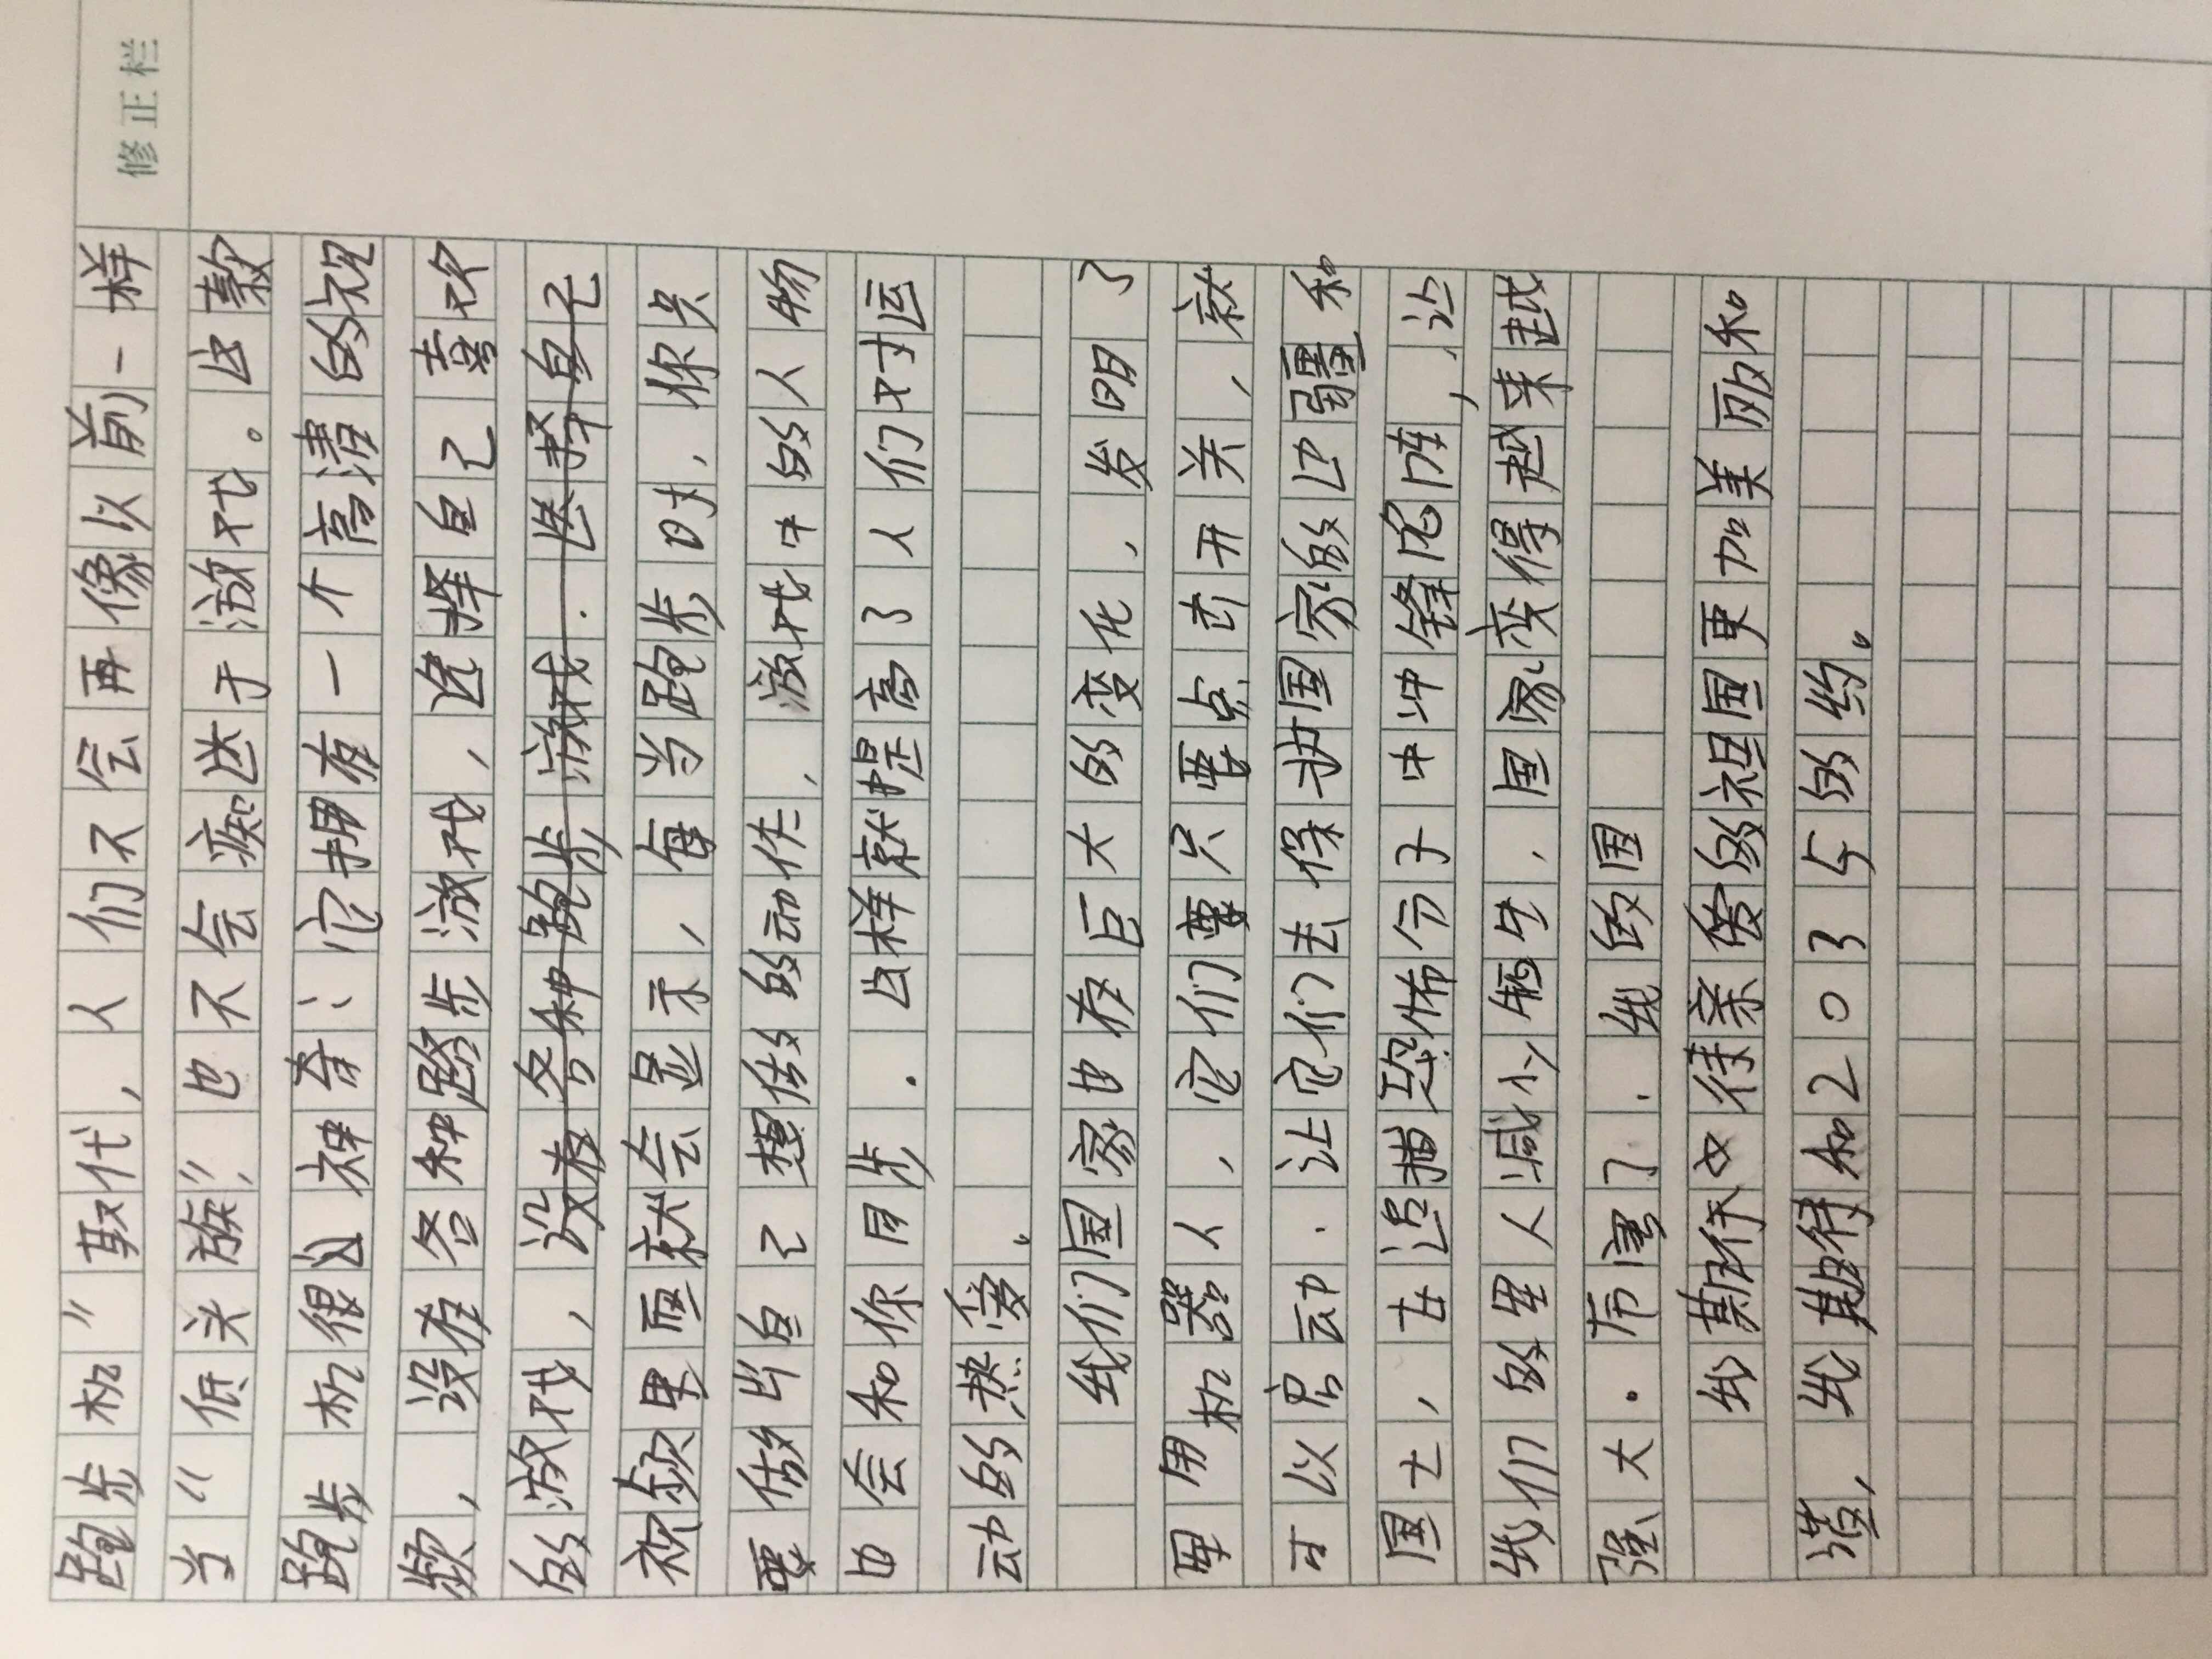 修正栏
跑步机”取代，人们不会再像以前一样
当“低头族”，也不会痴迷于游戏。这款
跑步机很神奇：它拥有一个高清的视
频，没有各种跑步游戏，选择自己喜欢
的游戏，没有各种跑步游戏．选择自己
视频里面就会显示，每当跑步时，你只
要做出自己想做的动作，游戏中的人物
也会和你同步．这样就提高了人们对运
动的热爱。
我们国家也有巨大的变化，发明了
军用机器人，它们要只要点击开关，就
可以启动．让它们去保护国家的边疆和
国土，在追捕恐怖分子中冲锋陷阵，让
我们的军人减少牺牲，国家变得越来越
强大．厉害了．我的国
我期待亲爱的祖国更加美丽和
谐，我期待和2035的约。